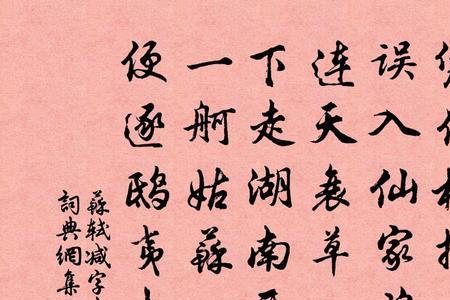 误入仙家
連天衰草
下走湖南
一舸姑蘇
便逐鴟夷
蘇軾减字
詞典網集